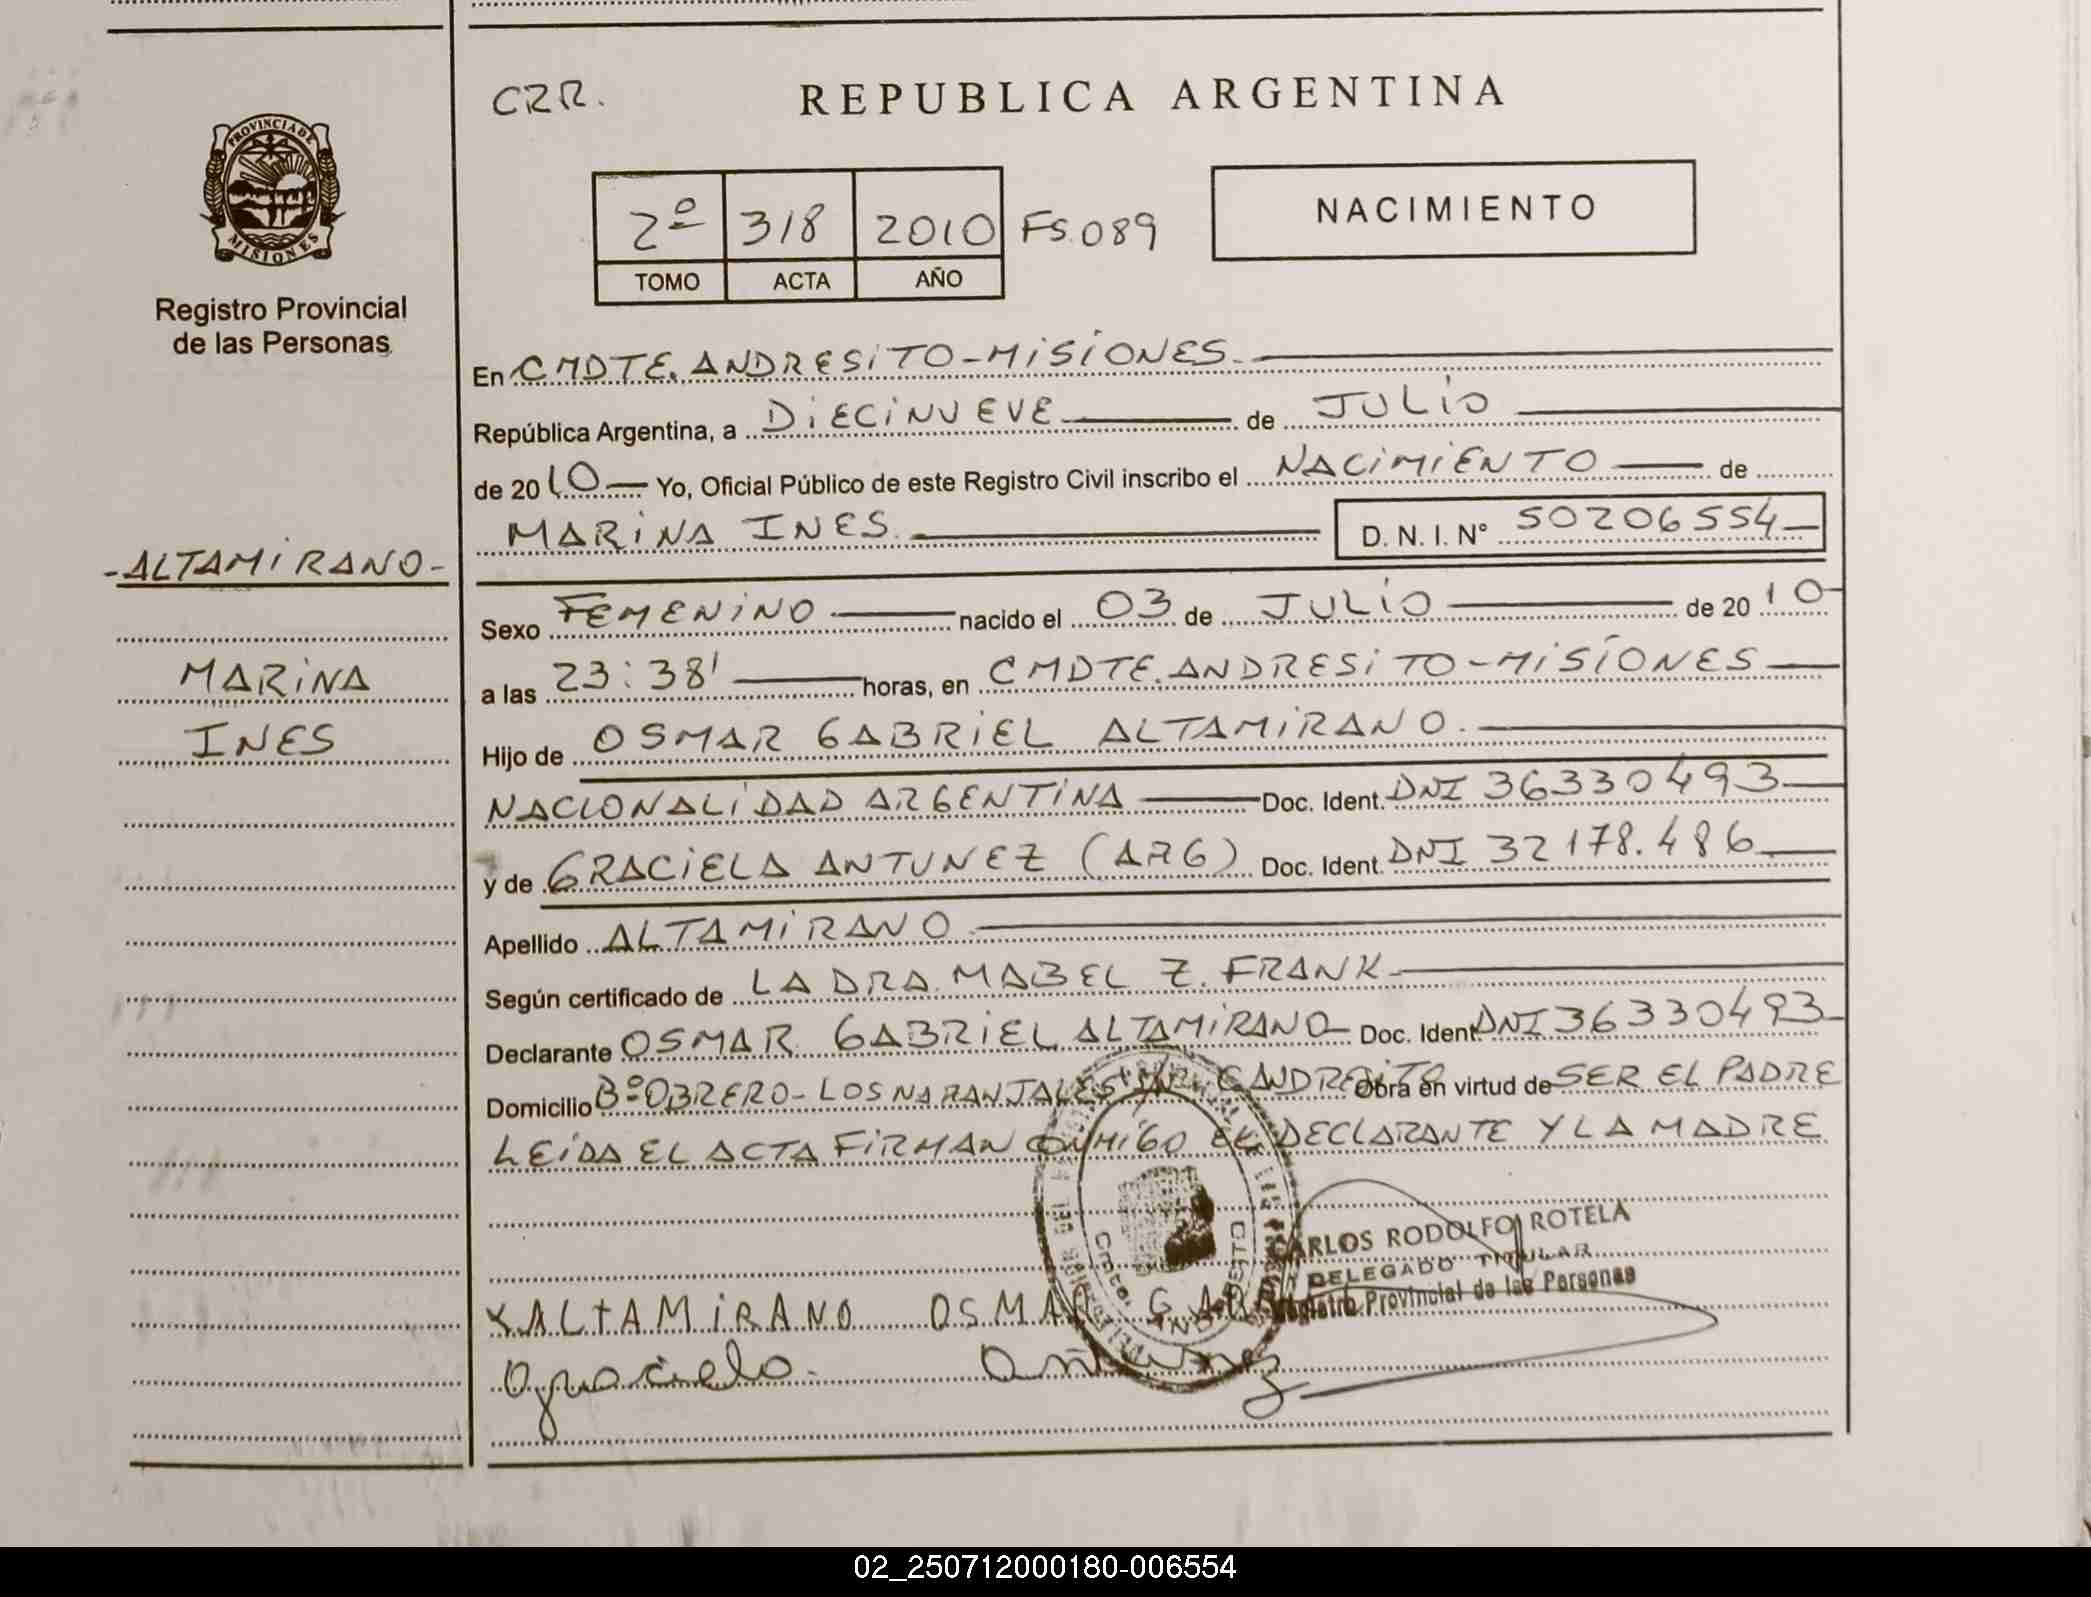 PROVINCIA DE
MISIONES
Registro Provincial
de las Personas
-ALTAMIRANO-
MARINA
INES
CRR.
REPUBLICA ARGENTINA
2º 318 2010 FS.089
TOMO ACTA AÑO
NACIMIENTO
En CMDTE. ANDRESITO-MISIONES.
República Argentina, a DIECINUEVE de JULIO
de 2010 Yo, Oficial Público de este Registro Civil inscribo el NACIMIENTO de
MARINA INES. D. N. I. Nº 50206554
Sexo FEMENINO nacido el 03 de JULIO de 2010
a las 23:38' horas, en CMDTE. ANDRESITO-MISIONES
Hijo de OSMAR GABRIEL ALTAMIRANO.
NACIONALIDAD ARGENTINA Doc. Ident. DNI 36330493
y de GRACIELA ANTUNEZ (ARG) Doc. Ident. DNI 32178.486
Apellido ALTAMIRANO
Según certificado de LA DRA. MABEL Z. FRANK
Declarante OSMAR GABRIEL ALTAMIRANO Doc. Ident. DNI 36330493
Domicilio Bº OBRERO-LOS NARANJALES C ANDRESITO Obra en virtud de SER EL PADRE
LEIDA EL ACTA FIRMAN CONMIGO EL DECLARANTE Y LA MADRE
CARLOS RODOLFO ROTELA
DELEGADO TITULAR
Registro Provincial de las Personas
XALTAMIRANO OSMAR
Graciela Antunez
02_250712000180-006554